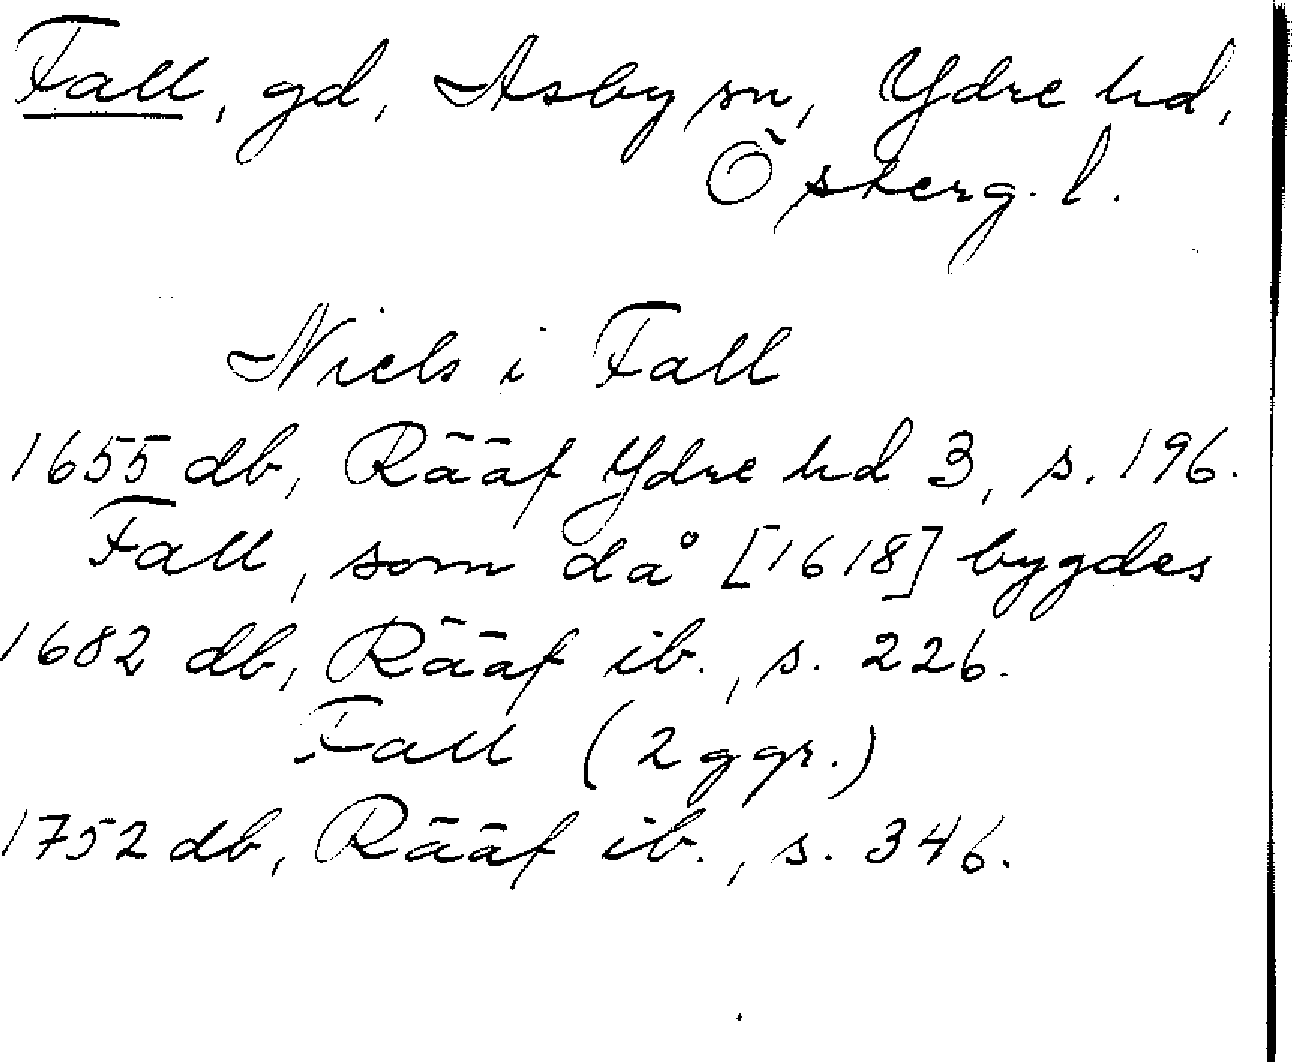 Fall, gd, Asby sn, Ydre hd,
Österg. l.
Niels i Fall
1655 db, Rääf Ydre hd 3, s. 196.
Fall, som då [1618] bygdes
1682 db, Rääf ib., s. 226.
Fall (2 ggr.)
1752 db, Rääf ib., s. 346.